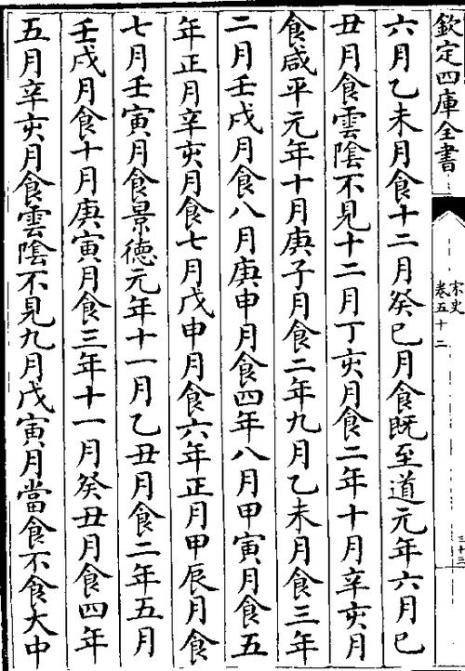 欽定四庫全書
宋史
卷五十二
三十三
六月乙未月食十二月癸巳月食既至道元年六月已
丑月食雲隂不見十二月丁亥月食二年十月辛亥月
食咸平元年十月庚子月食二年九月乙未月食三年
二月壬戌月食八月庚申月食四年八月甲寅月食五
年正月辛亥月食七月戊申月食六年正月甲辰月食
七月壬寅月食景德元年十一月乙丑月食二年五月
壬戌月食十月庚寅月食三年十一月癸丑月食四年
五月辛亥月食雲隂不見九月戊寅月當食不食大中